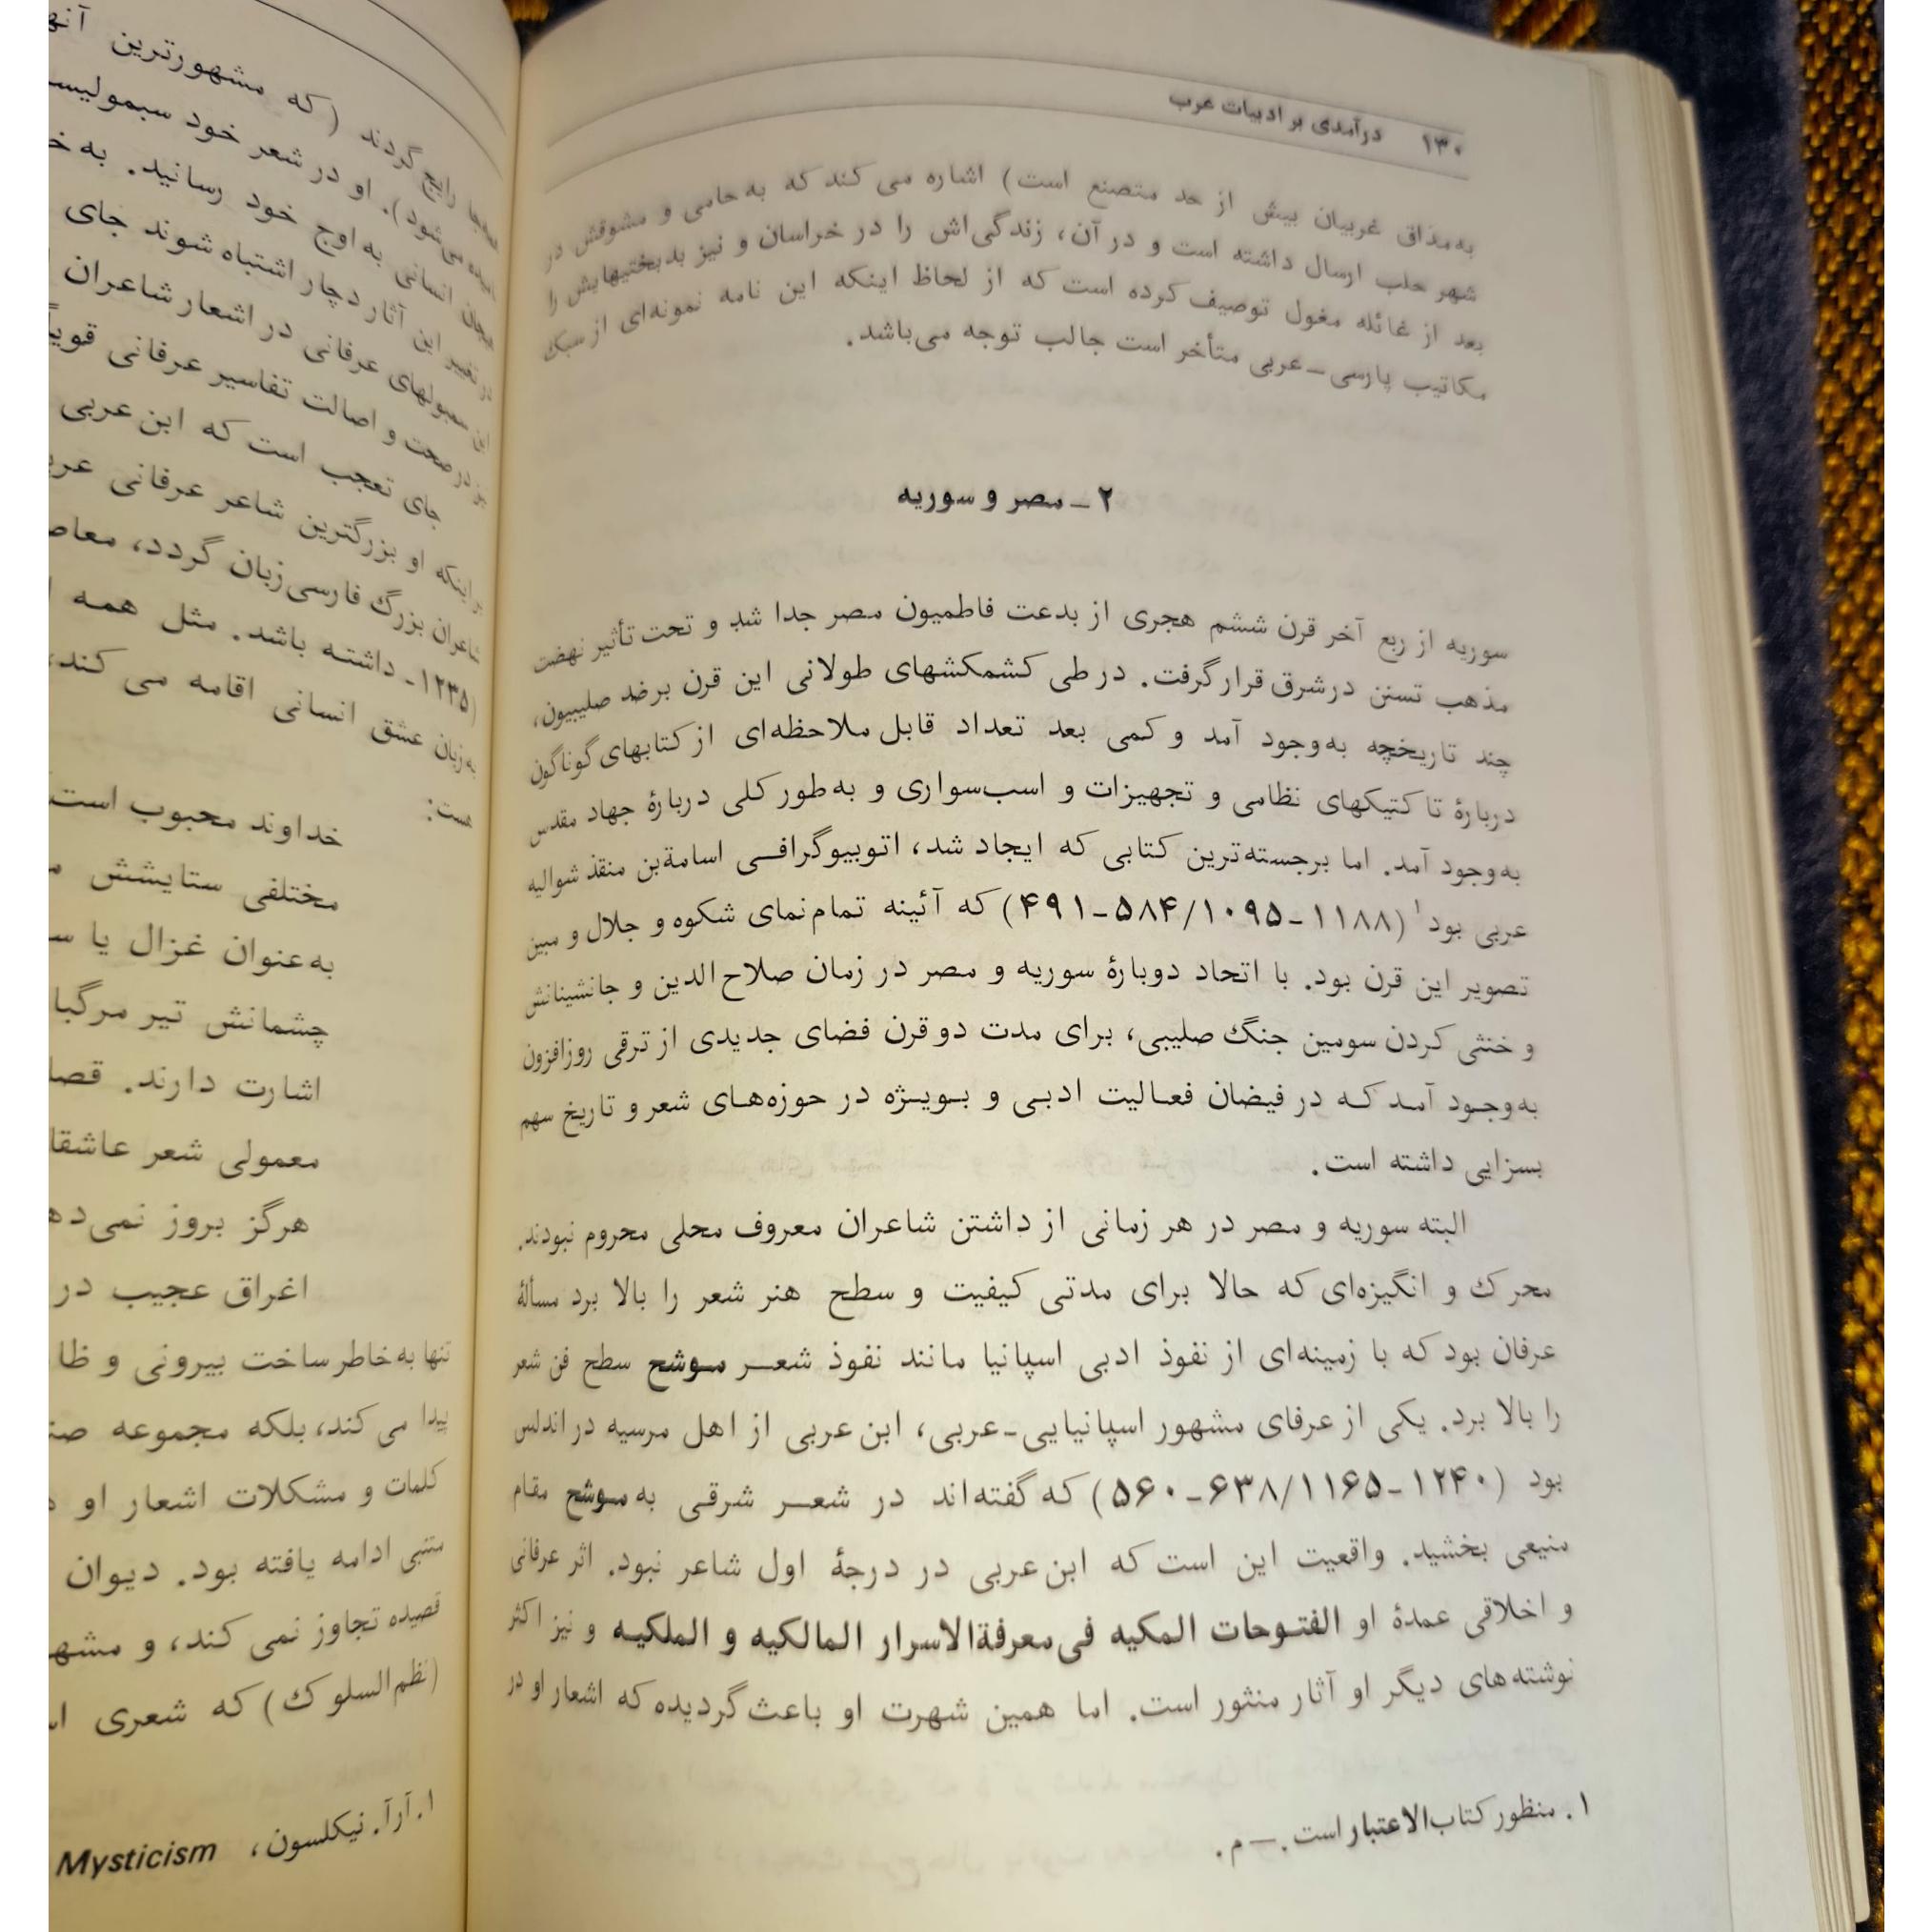 ۱۳۰ درآمدی بر ادبیات عرب
به‌مذاق غربیان بیش از حد متصنع است) اشاره می‌کند که به حامی و مشوقش در
شهر حلب ارسال داشته است و در آن، زندگی‌اش را در خراسان و نیز بدبختیهایش را
بعد از غائله مغول توصیف کرده است که از لحاظ اینکه این نامه نمونه‌ای از سبک
مکاتیب پارسی–عربی متأخر است جالب توجه می‌باشد.
۲– مصر و سوریه
سوریه از ربع آخر قرن ششم هجری از بدعت فاطمیون مصر جدا شد و تحت تأثیر نهضت
مذهب تسنن در شرق قرار گرفت. در طی کشمکشهای طولانی این قرن برضد صلیبیون،
چند تاریخچه به‌وجود آمد و کمی بعد تعداد قابل ملاحظه‌ای از کتابهای گوناگون
دربارهٔ تاکتیکهای نظامی و تجهیزات و اسب‌سواری و به‌طور کلی دربارهٔ جهاد مقدس
به‌وجود آمد. اما برجسته‌ترین کتابی که ایجاد شد، اتوبیوگرافی اسامةبن منقذ شوالیه
عربی بود۱ (۱۱۸۸–۱۰۹۵/۵۸۴–۴۹۱) که آئینه تمام‌نمای شکوه و جلال و مبین
تصویر این قرن بود. با اتحاد دوبارهٔ سوریه و مصر در زمان صلاح‌الدین و جانشینانش
و خنثی کردن سومین جنگ صلیبی، برای مدت دو قرن فضای جدیدی از ترقی روزافزون
به‌وجود آمد که در فیضان فعالیت ادبی و بویژه در حوزه‌های شعر و تاریخ سهم
بسزایی داشته است.
البته سوریه و مصر در هر زمانی از داشتن شاعران معروف محلی محروم نبودند.
محرک و انگیزه‌ای که حالا برای مدتی کیفیت و سطح هنر شعر را بالا برد مسألهٔ
عرفان بود که با زمینه‌ای از نفوذ ادبی اسپانیا مانند نفوذ شعر موشح سطح فن شعر
را بالا برد. یکی از عرفای مشهور اسپانیایی–عربی، ابن‌عربی از اهل مرسیه در اندلس
بود (۱۲۴۰–۱۱۶۵/۶۳۸–۵۶۰) که گفته‌اند در شعر شرقی به موشح مقام
منیعی بخشید. واقعیت این است که ابن‌عربی در درجهٔ اول شاعر نبود. اثر عرفانی
و اخلاقی عمدهٔ او الفتوحات المکیه فی‌معرفةالاسرار المالکیه و الملکیه و نیز اکثر
نوشته‌های دیگر او آثار منثور است. اما همین شهرت او باعث گردیده که اشعار او در
۱. منظور کتاب الاعتبار است. – م.
رایج گردند (که مشهورترین
می‌شود). او در شعر خود
انسانی به اوج خود رسانید.
در تغییر این آثار دچار اشتباه شوند جای
این سمبولهای عرفانی در اشعار شاعران
در صحت و اصالت تفاسیر عرفانی
جای تعجب است که ابن‌عربی
اینکه او بزرگترین شاعر عرفانی
شاعران بزرگ فارسی‌زبان گردد،
(۱۲۳۵– داشته باشد. مثل همه
به‌زبان عشق انسانی اقامه می‌کند،
هست:
خداوند محبوب است
مختلفی ستایشش
به‌عنوان غزال یا
چشمانش تیر
اشارت دارند.
معمولی شعر
هرگز بروز
اغراق عجیب در
تنها به‌خاطر ساخت بیرونی و
پیدا می‌کند، بلکه مجموعه
کلمات و مشکلات اشعار او
متنبی ادامه یافته بود. دیوان
قصیده تجاوز نمی‌کند، و
(نظم‌السلوک) که شعری
۱. آر.آ. نیکلسون، Mysticism